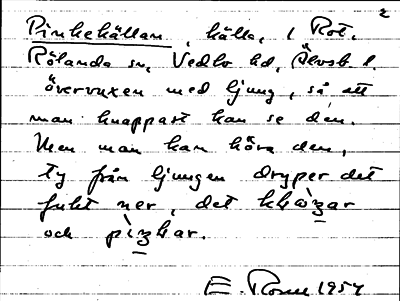 2
Pinkekällan, källa, i Rot.
Rölanda sn, Vedbo hd, Älvsb. l.
övervuxen med ljung, så att
man knappast kan se den.
Men man kan höra den,
ty från ljungen dryper det
fukt ner, det
och pìnkar.
E. 1957